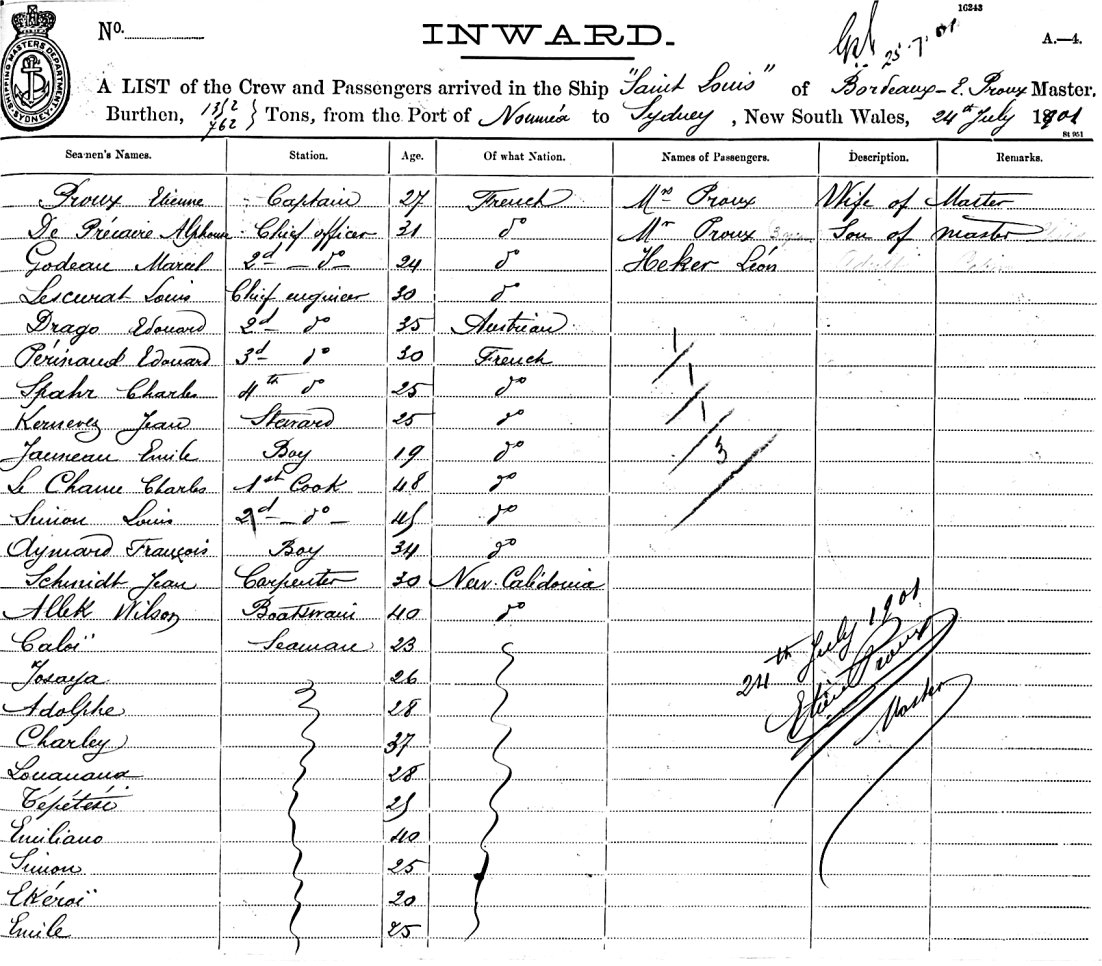 16243
No.
INWARD.
25.7.01
A.—4.
SHIPPING MASTERS DEPARTMENT SYDNEY
A LIST of the Crew and Passengers arrived in the Ship "Saint Louis" of Bordeaux - E. Proux Master,
Burthen, 1312/762 } Tons, from the Port of Nouméa to Sydney, New South Wales, 24th July 1901
St 951
Seamen's Names. Station. Age. Of what Nation. Names of Passengers. Description. Remarks.
Proux Etienne Captain 27 French Mrs Proux Wife of Master
De Préaire Alphonse Chief officer 31 do Mr Proux Son of master
Godeau Marcel 2d — do 24 do Heker Léon
Lescurat Louis Chief engineer 30 do
Drago Edouard 2d do 35 Austrian
Périnaud Edouard 3d do 30 French 1
Spahr Charles 4th do 25 do 1
Kernevez Jean Steward 25 do 1
Jauneau Emile Boy 19 do 3
Le Chanu Charles 1st Cook 48 do
Simon Louis 2d — do — 45 do
Aymard François Boy 34 do
Schmidt Jean Carpenter 30 New Calédonia
Allek Wilson Boatswain 40 do
Caloï Seaman 23
Josaya 26
Adolphe 28
Charley 37
Louanana 28
Tépétési 25
Emiliano 40
Simon 25
Ekéroï 20
Emile 25
24th July 1901
Etienne Proux
Master